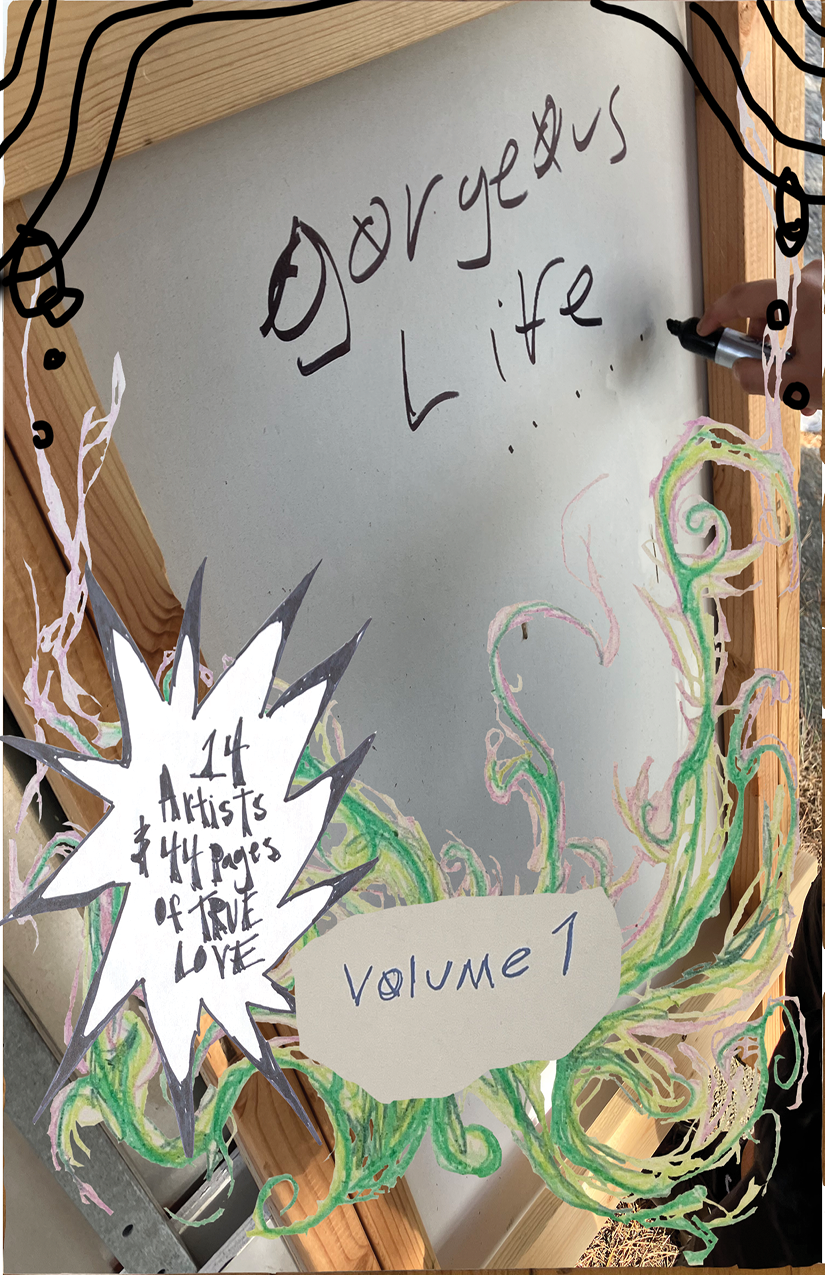 gorgeous
Life
14
Artists
& 44 pages
of TRUE
LOVE
Volume 1